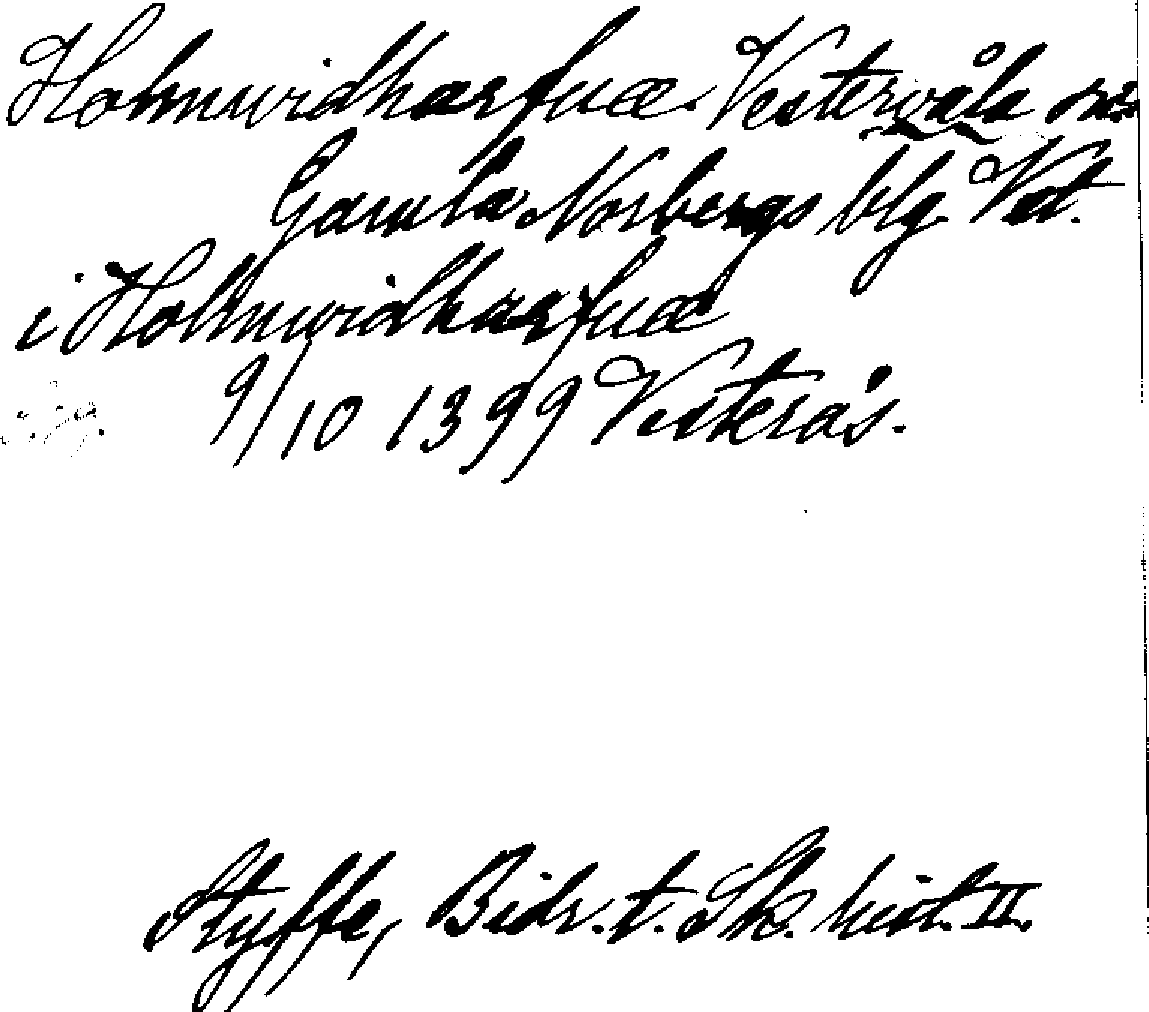 Holmwidhærfuæ. Vestervåla sn:
Gamla Norbergs blg. Vstl.
i Holmwidhærfuæ
9/10 1399 Vesterås.
Styffe, Bidr. t. Sk. hist. II.